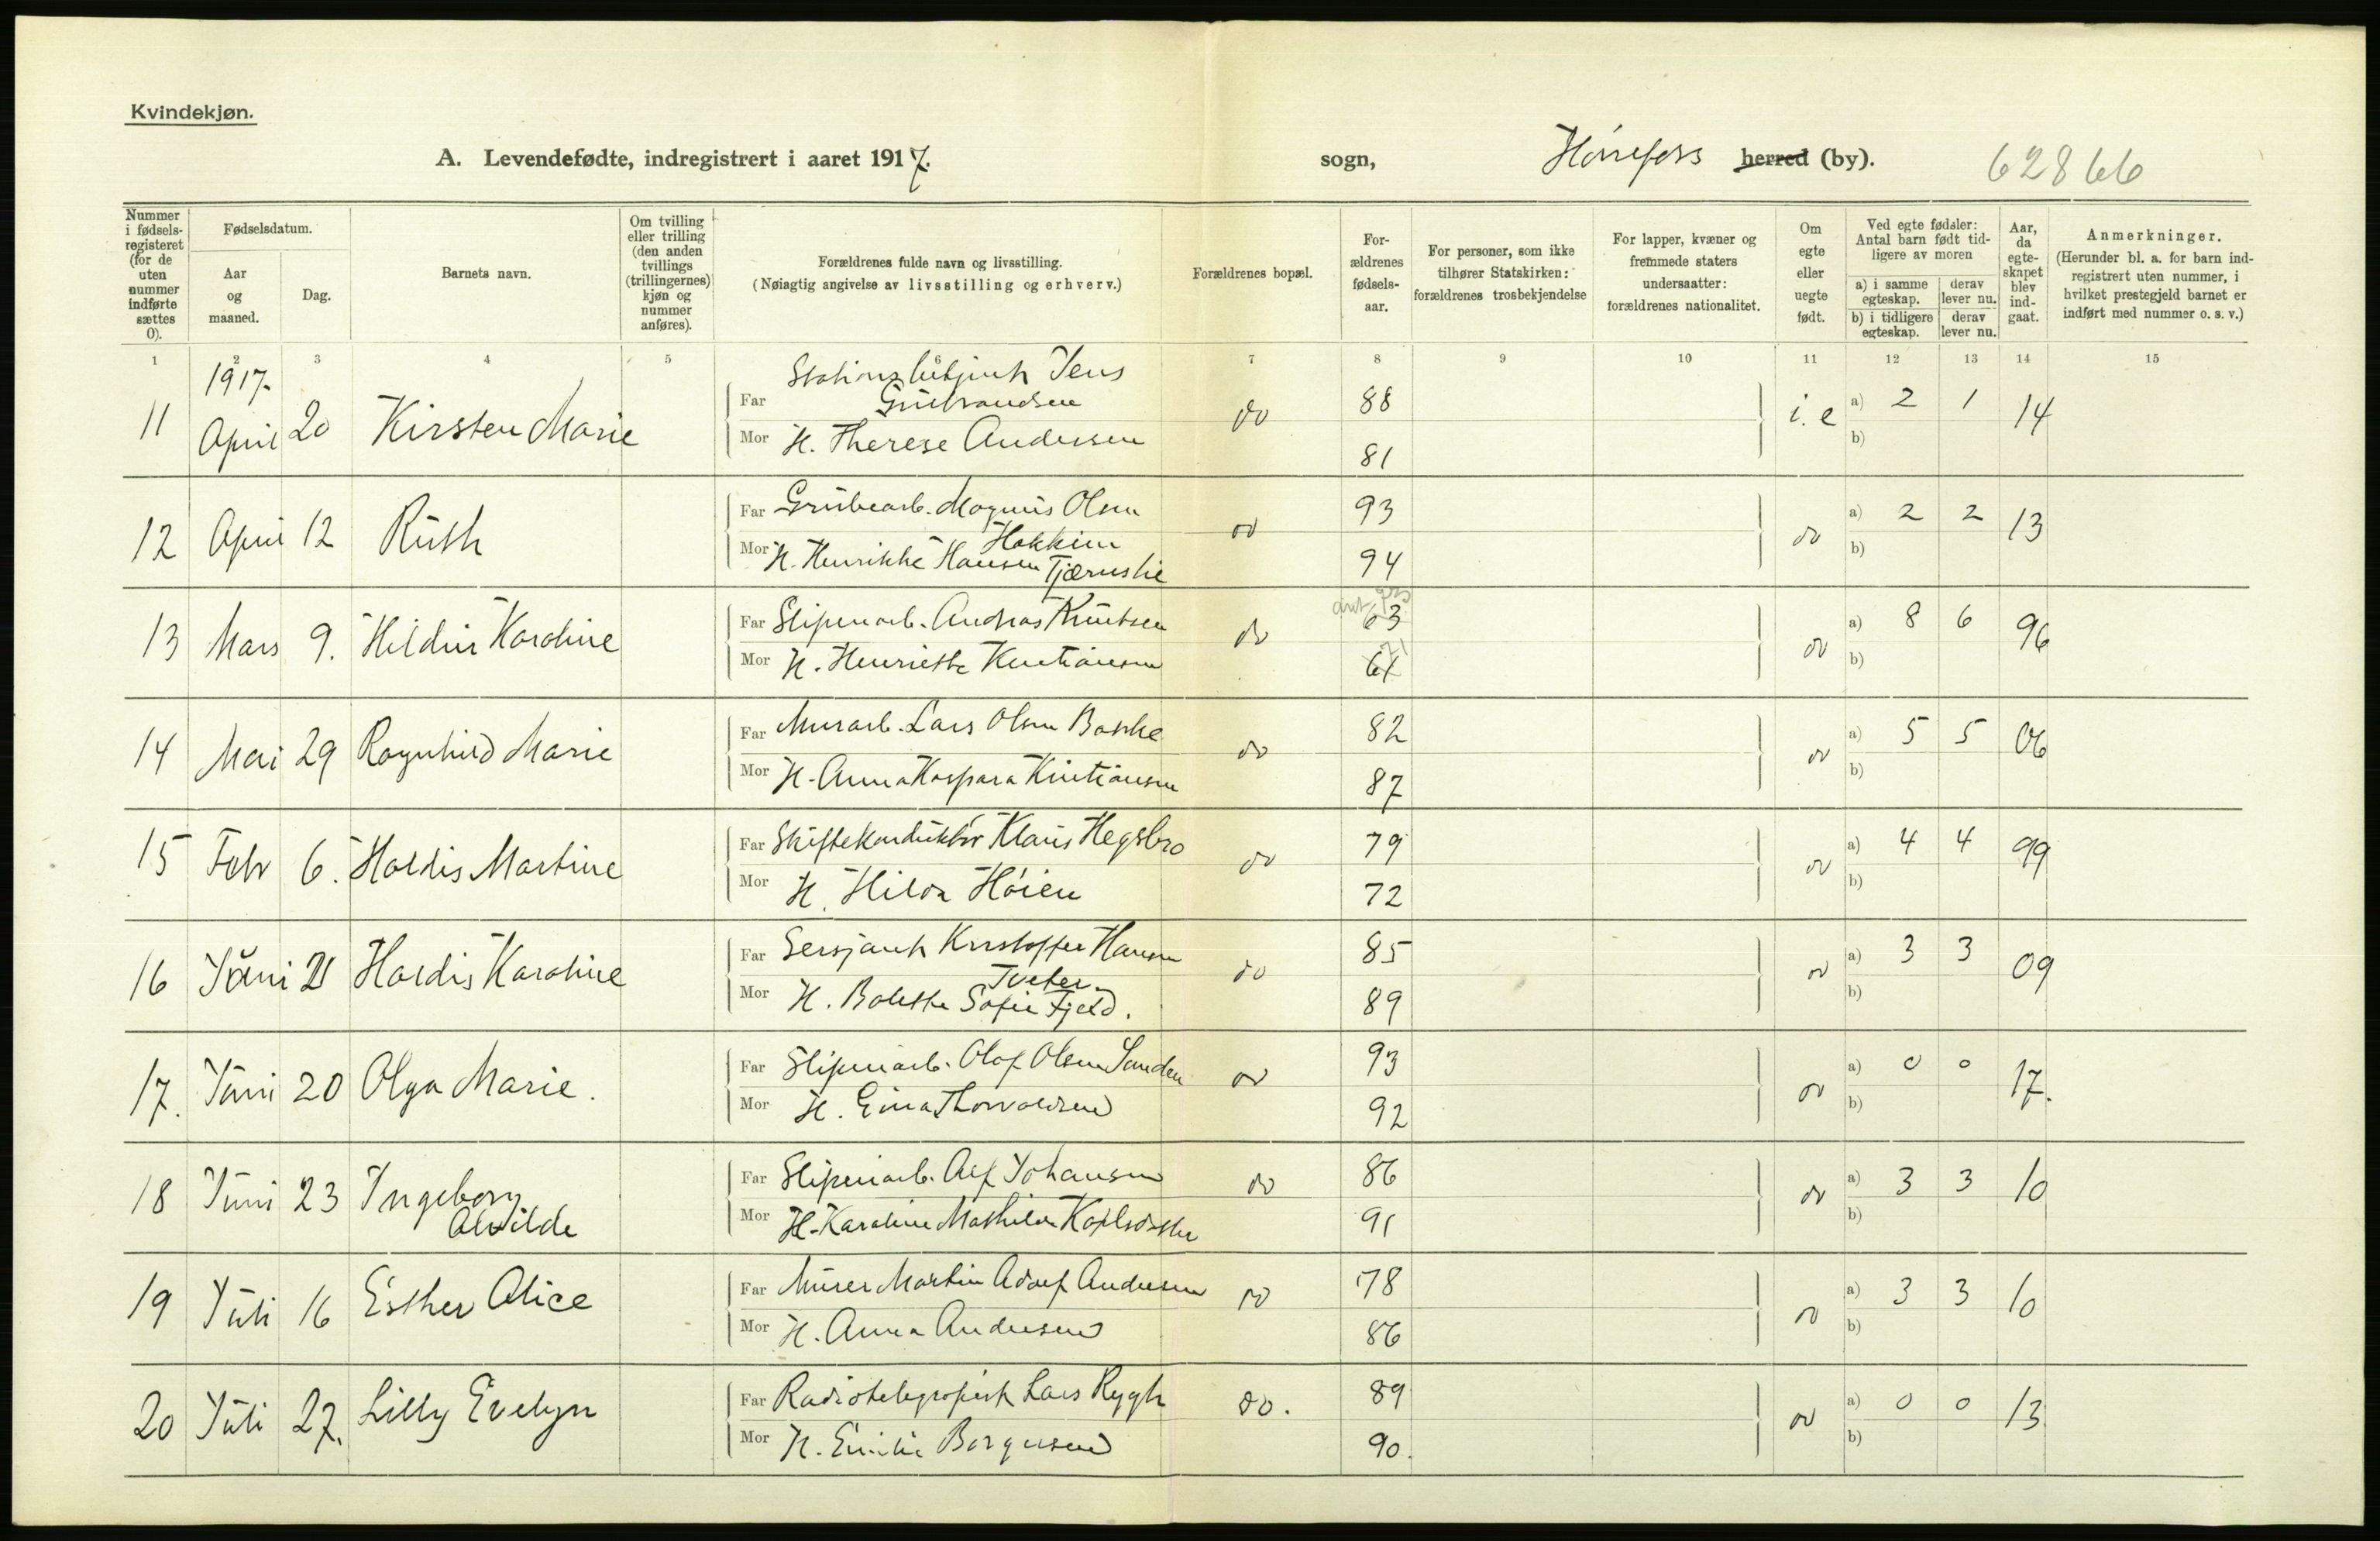 Kvindekjøn.
A. Levendefødte, indregistrert i aaret 1917. sogn, Hönefoss herred (by). 62866
Nummer i fødsels-registeret (for de uten nummer indførte sættes 0).
Fødselsdatum.
Aar og maaned.
Dag.
Barnets navn.
Om tvilling eller trilling (den anden tvillings (trillingernes) kjøn og nummer anføres).
Forældrenes fulde navn og livsstilling.
(Nøiagtig angivelse av livsstilling og erhverv.)
Forældrenes bopæl.
For-ældrenes fødsels-aar.
For personer, som ikke tilhører Statskirken: forældrenes trosbekjendelse
For lapper, kvæner og fremmede staters undersaatter: forældrenes nationalitet.
Om egte eller uegte født.
Ved egte fødsler: Antal barn født tid-ligere av moren
a) i samme egteskap.
derav lever nu.
b) i tidligere egteskap.
derav lever nu.
Aar, da egte-skapet blev ind-gaat.
Anmerkninger.
(Herunder bl. a. for barn ind-registrert uten nummer, i hvilket prestegjeld barnet er indført med nummer o. s. v.)
1 2 3 4 5 6 7 8 9 10 11 12 13 14 15
1917.
11 April 20 Kirsten Marie Far Jens Gulbrandsen do 88 i. e a) 2 1 14
Mor H. Therese Andersen 81 b)
12 April 12 Ruth Far Grubearb. Magnus Olsen do 93 do a) 2 2 13
Mor H. Henrikke Hansen Tjærnslie 94 b)
13 Mars 9. Hildur Karoline Far Sliperiarb. Andreas Knutsen do 63 do a) 8 6 96
Mor H. Henriette Kristiansen b)
14 Mai 29 Ragnhild Marie Far Murarb. Lars Olsen Bakke do 82 do a) 5 5 06
Mor H. Anna Kaspara Kristiansen 87 b)
15 Febr 6. Haldis Martine Far Skiftekonduktör Klaus Hegsbro do 79 do a) 4 4 99
Mor H. Hilda Höien 72 b)
16 Juni 21 Hardis Karoline Far Sersjant Kristoffer Hansen Tveter do 85 do a) 3 3 09
Mor H. Bolette Sofie Fjeld. 89 b)
17. Juni 20 Olga Marie. Far Sliperiarb. Olaf Olsen Sanden do 93 do a) 0 0 17.
Mor H. Gina Thorvaldsen 92 b)
18 Juni 23 Ingeborg Alvilde Far Sliperiarb. Alf Johansen do 86 do a) 3 3 10
Mor H. Karoline Mathilde 91 b)
19 Juli 16 Esther Alice Far Murer Martin Adolf Andersen do 78 do a) 3 3 10
Mor H. Anna Andersen 86 b)
20 Juli 27. Lilly Evelyn Far Radiotelegrafist Lars Rygh do. 89 do a) 0 0 13
Mor H. Emilie Borgersen 90. b)